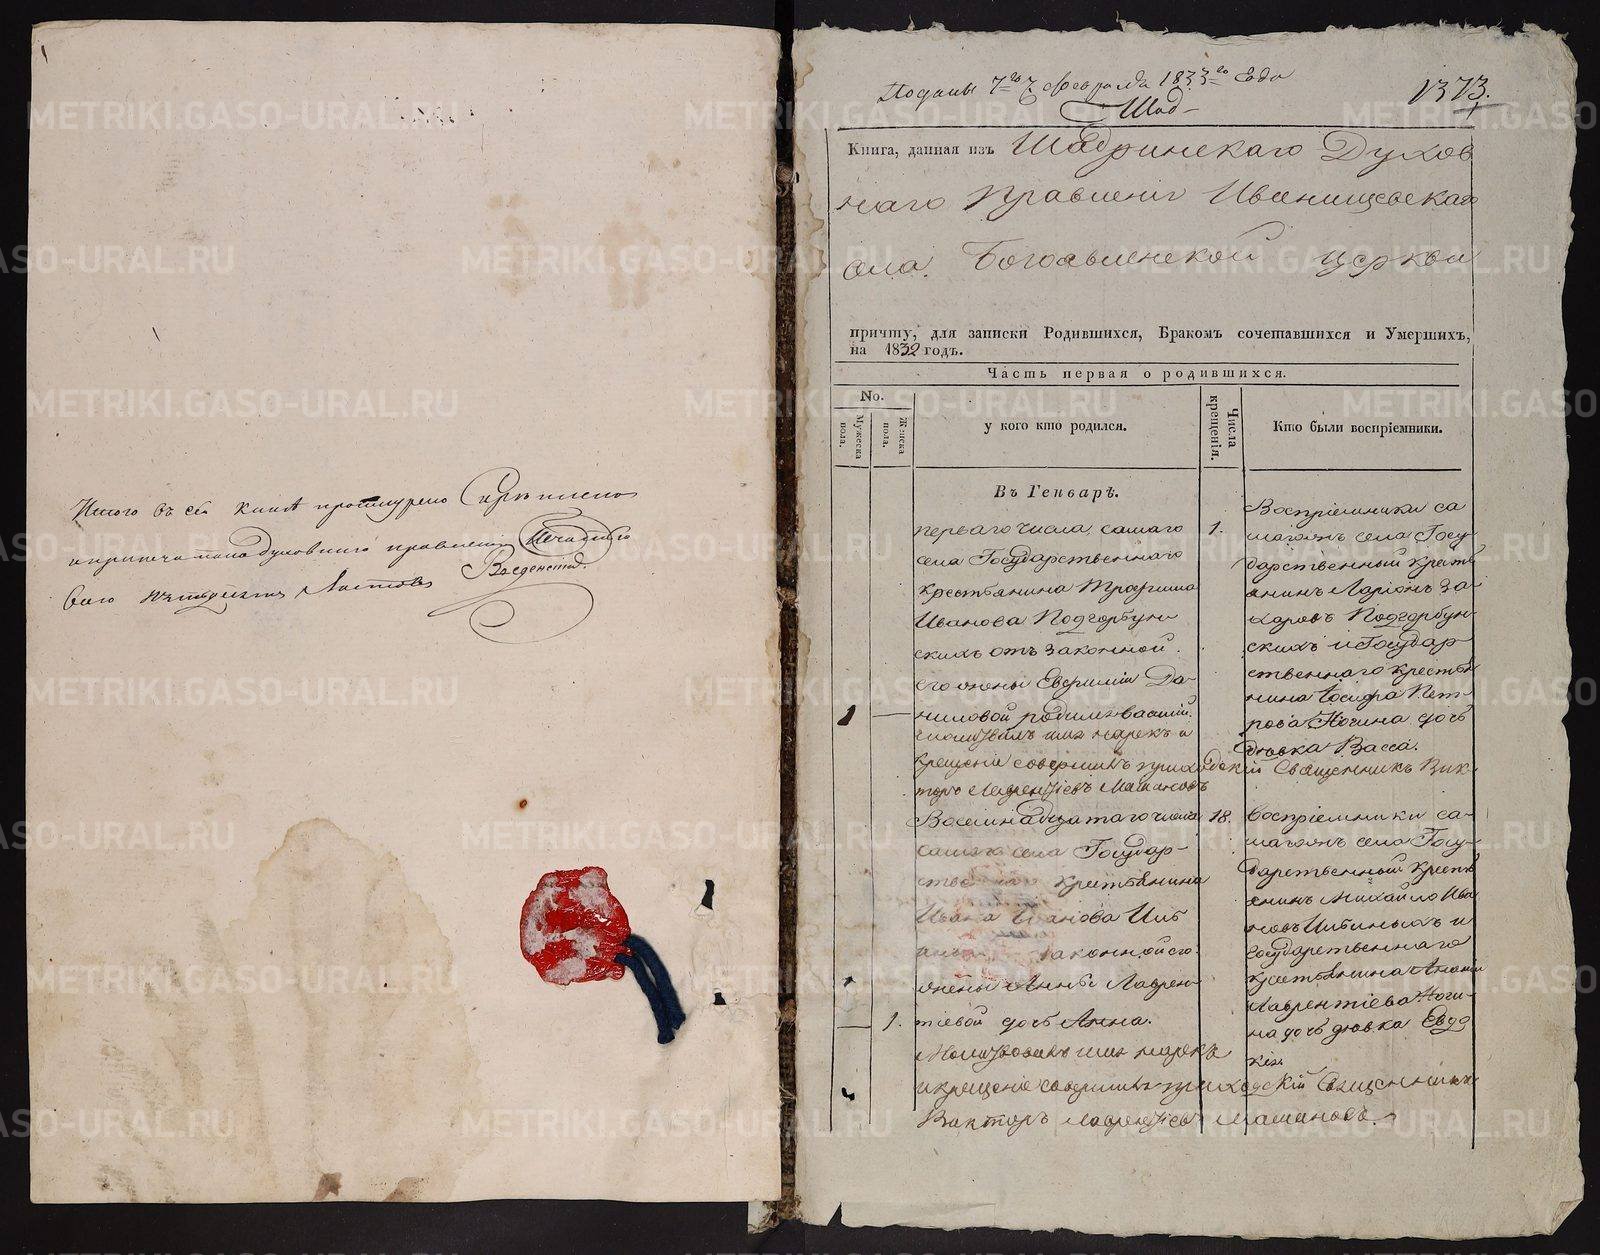 Итого въ сей книгѣ прошнурено скрѣплено
и припечатано духовнаго правленія печатью
всего листовъ
Поданы 7го февраля 1833го года
Шад-
1373.
Книга, данная изъ Шадринскаго Духов
наго Правленія Ивенищевскаго
села Богоявленской церкви
причту, для записки Родившихся, Бракомъ сочетавшихся и Умершихъ,
на 1832 годъ.
Часть первая о родившихся.
No.
Мужеска пола.
Женска пола.
у кого кто родился.
Числа крещенія.
Кто были воспріемники.
Въ Генварѣ.
перваго числа самаго
села Государственнаго
крестьянина Трофима
Иванова Подгорбун
скихъ отъ законной
его жены Евфиміи Да-
1 ниловой родился Василій.
молитвилъ имя нарекъ и
крещеніе совершилъ приходскій Священникъ Вик-
торъ Лаврентіевъ Машановъ
1.
Воспріемники са
магожъ села Госу-
дарственный крестья
нинъ Ларіонъ За
харовъ Подгорбун
скихъ и Государ
ственнаго крестья
нина Іосифа Пет-
рова Ногина дочь
дѣвка Васса.
Восемнадцатаго числа
самаго села Государ-
крестьянина
Ивана Иванова
законной его
жены Анны Лаврен-
1. тіевой дочь Анна.
Молитвовалъ имя нарекъ
и крещеніе совершилъ приходскій Священникъ
Викторъ Лаврентіевъ Машановъ.
18.
воспріемники са-
магожъ села Госу-
дарственный кресть
янинъ Михайло Ива
новъ и
государственнаго
крестьянина Ананіи
Лаврентіева Ноги-
на дочь дѣвка Евдо
кія
METRIKI.GASO-URAL.RU